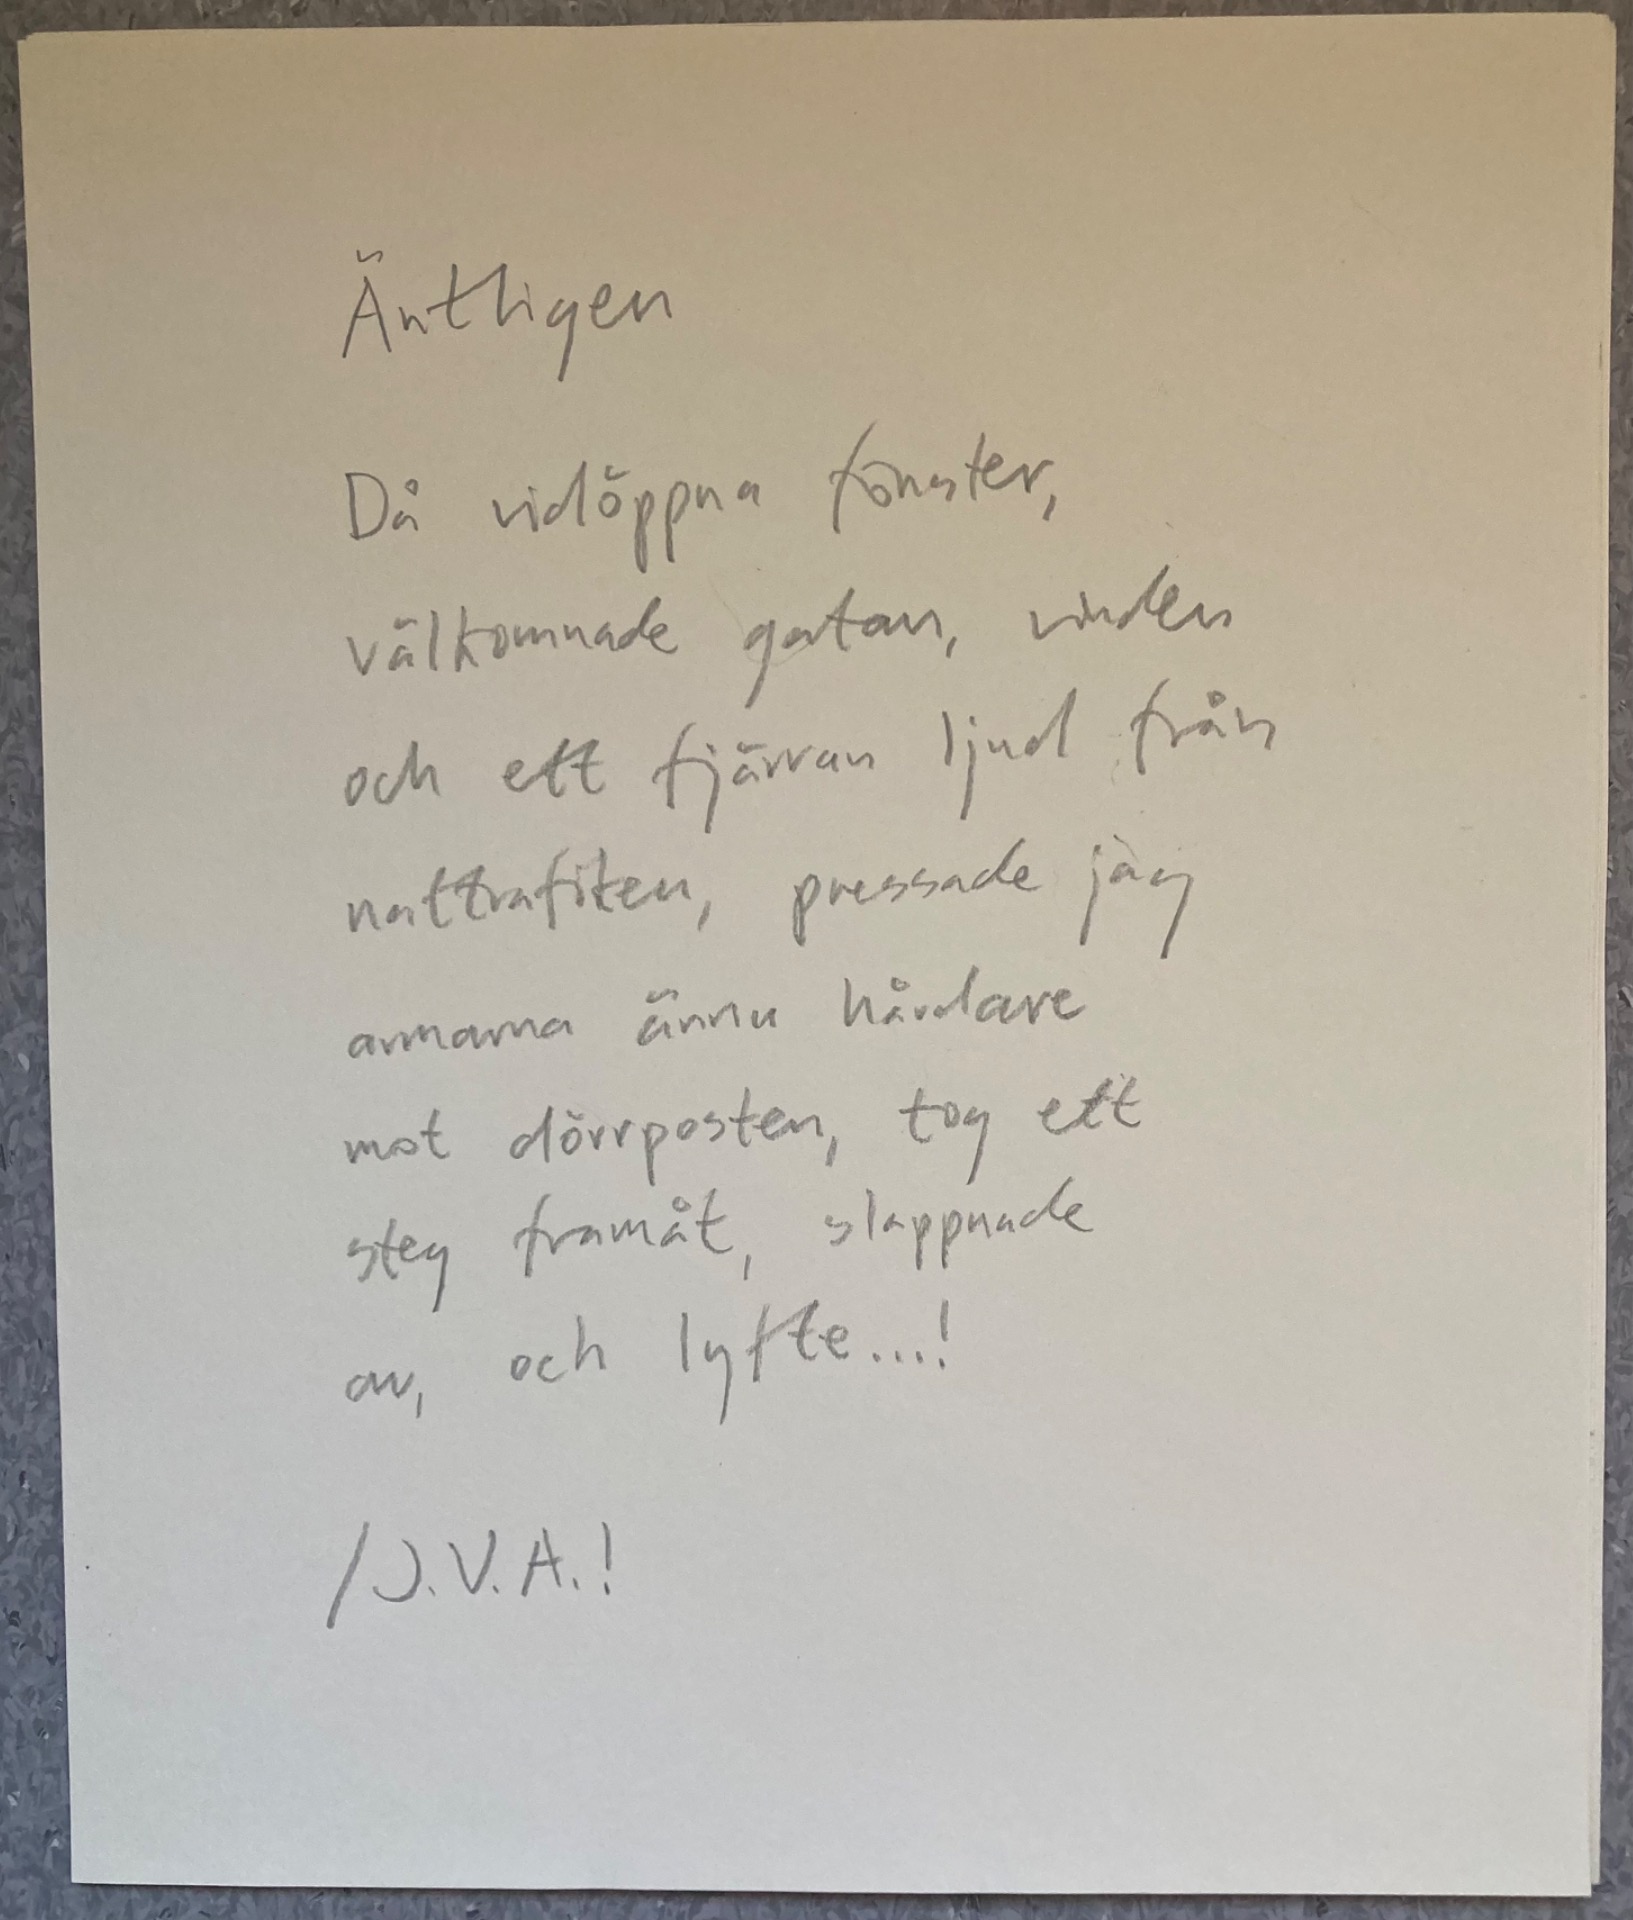 Äntligen
Då vidöppna fönster,
välkomnade gatan, vinden
och ett fjärran ljud från
nattrafiken, pressade jag
armarna ännu hårdare
mot dörrposten, tog ett
steg framåt, slappnade
av, och lyfte...!
/J.V.A.!